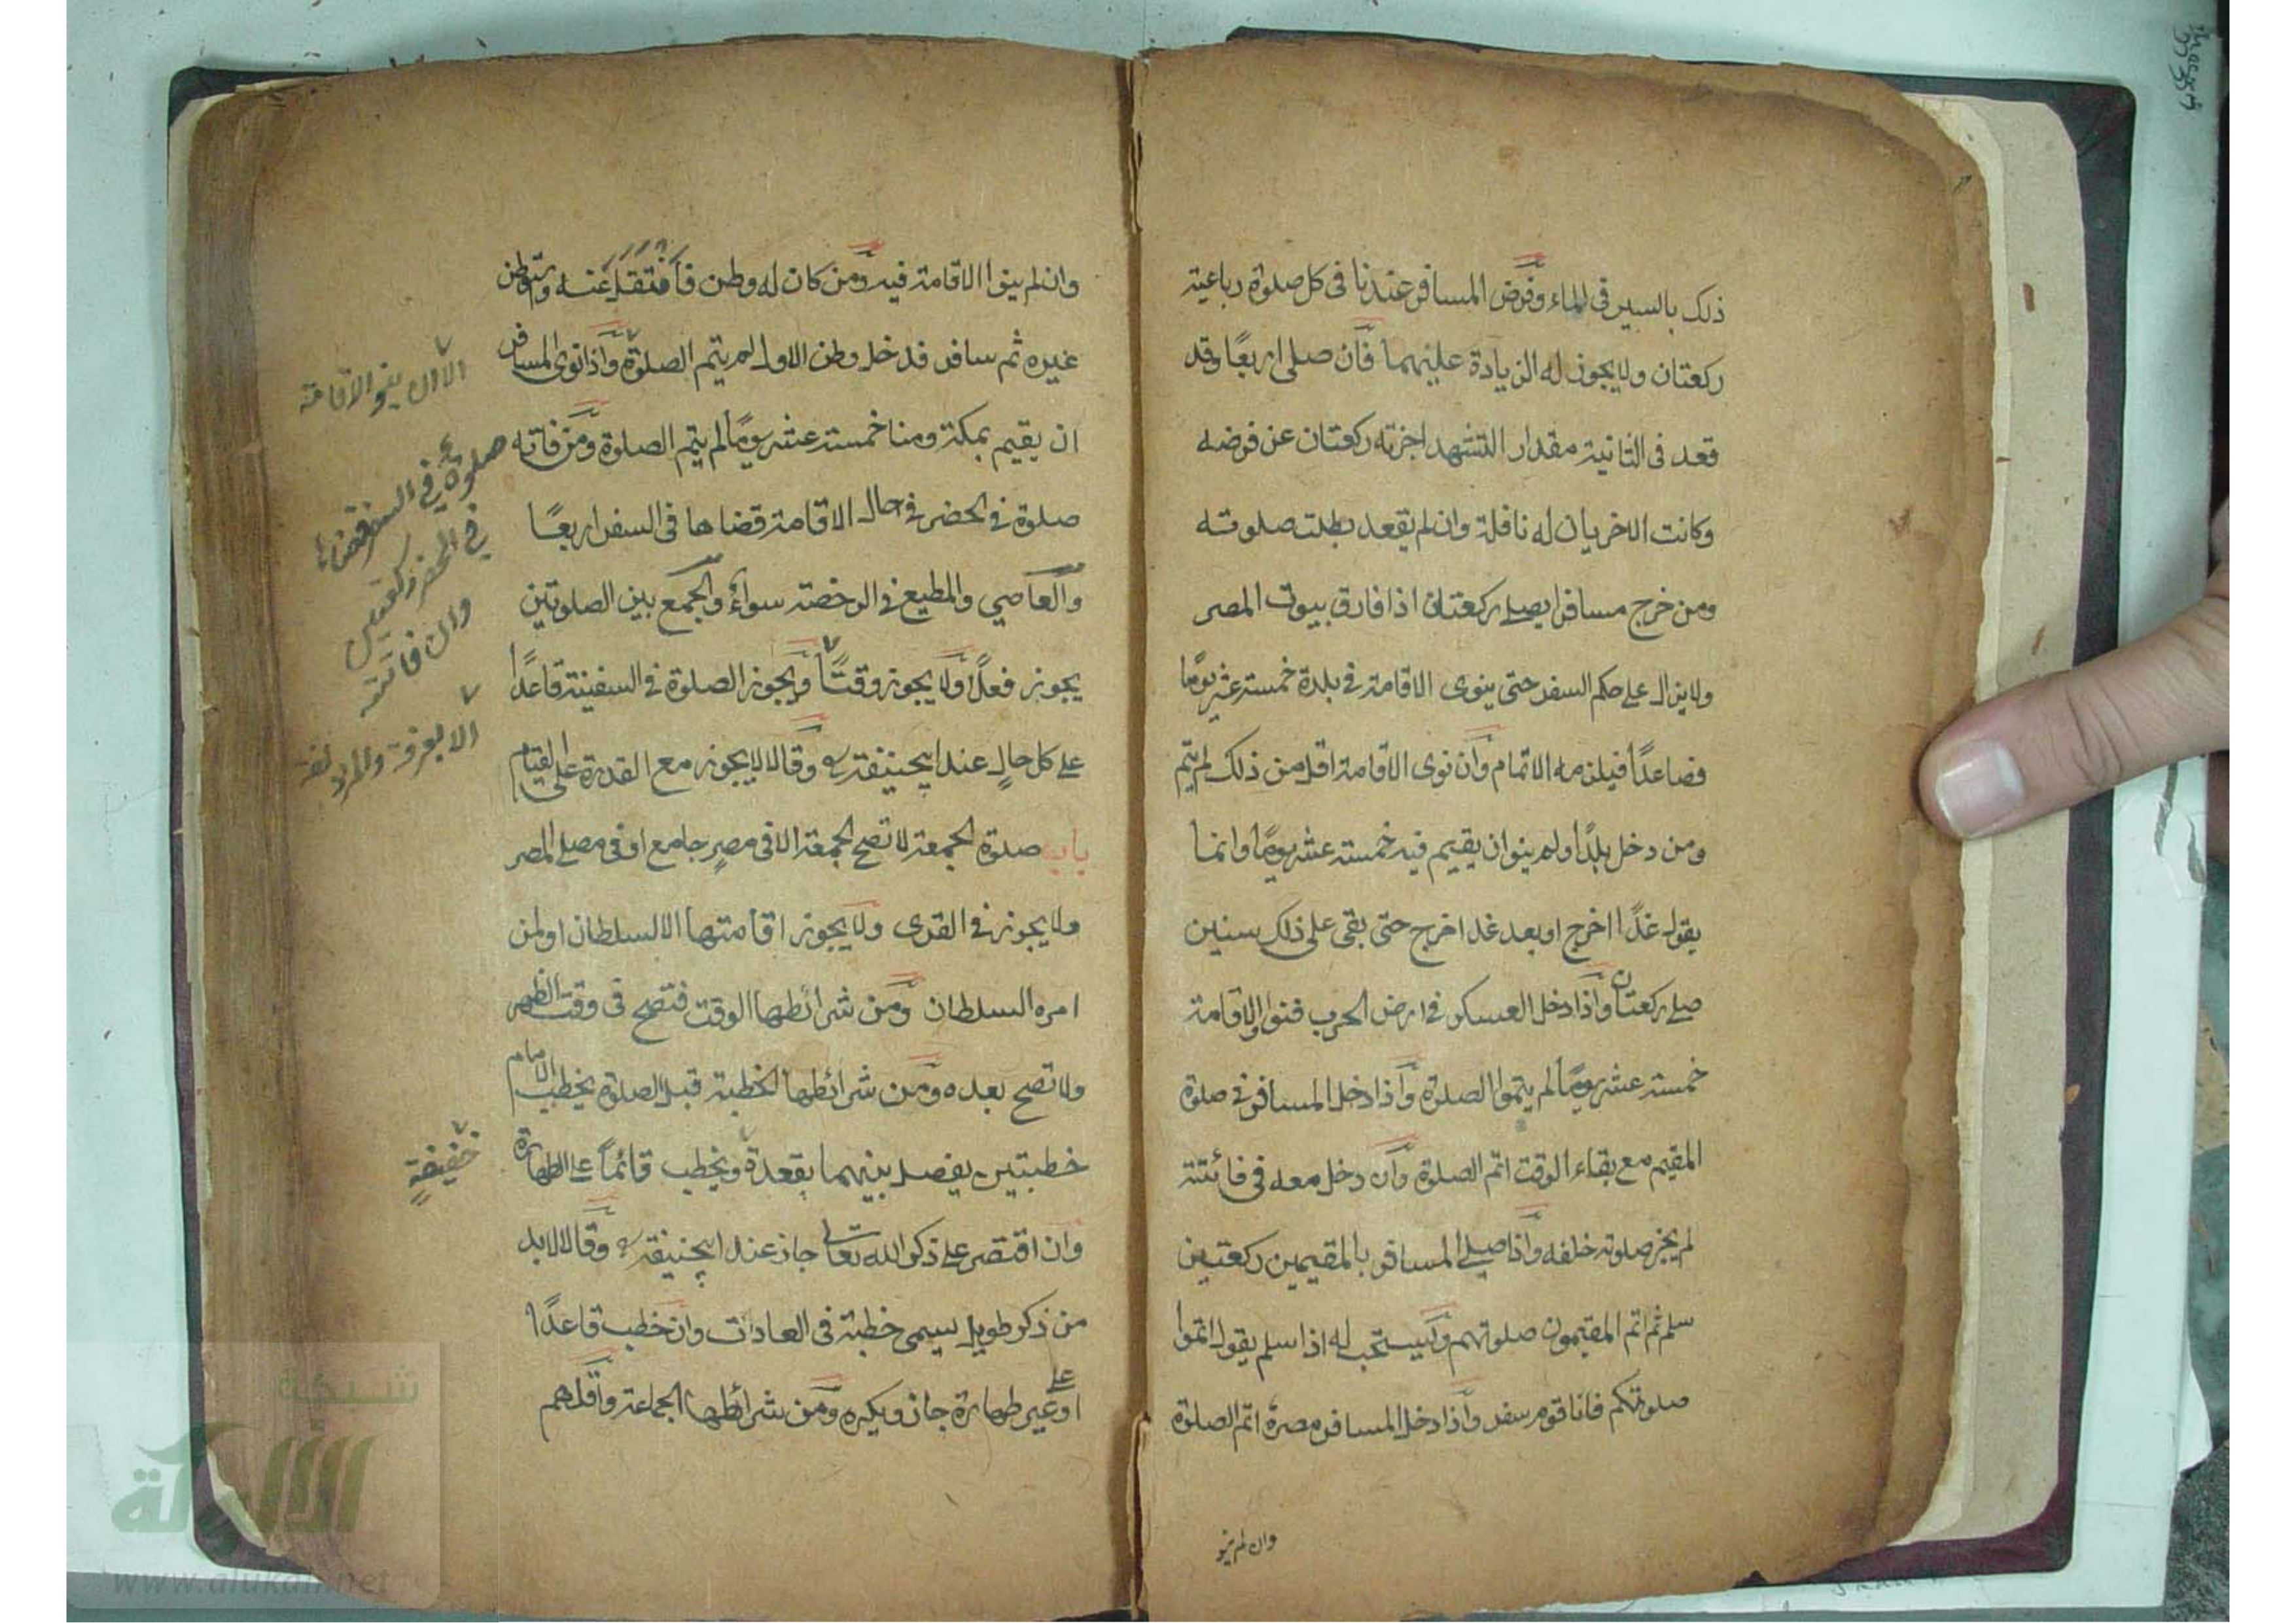 ذلك بالسير فى الماء وفرض المسافر عندنا فى كل صلوة رباعية
ركعتان ولا يجوز له الزيادة عليهما فان صلى اربعًا وقد
قعد فى الثانية مقدار التشهد اجزته ركعتان عن فرضه
وكانت الاخريان له نافلة وان لم يقعد بطلت صلوته
ومن خرج مسافرا يصلى ركعتان اذا فارق بيوت المصر
ولا يزال على حكم السفر حتى ينوى الاقامة فى بلدة خمسة عشر يومًا
فصاعدًا فيلزمه الاتمام وان نوى الاقامة اقل من ذلك لم يتم
ومن دخل بلدًا ولم ينو ان يقيم فيه خمسة عشر يومًا وانما
يقول غدًا اخرج او بعد غد اخرج حتى بقى على ذلك سنين
صلى ركعتان واذا دخل العسكر فى ارض الحرب فنووا الاقامة
خمسة عشر يومًا لم يتموا الصلوة واذا دخل المسافر فى صلوة
المقيم مع بقاء الوقت اتم الصلوة وان دخل معه فى فائتة
لم يجز صلوته خلفه واذا صلى المسافر بالمقيمين ركعتين
سلم ثم اتم المقيمون صلوتهم ويستحب له اذا سلم يقول اتموا
صلوتكم فانا قوم سفر واذا دخل المسافر مصره اتم الصلوة
وان لم ينو
وان لم ينوا الاقامة فيه ومن كان له وطن فانتقل عنه وتوطن
غيره ثم سافر فدخل وطن الاول لم يتم الصلوة واذا نوى المسافر
ان يقيم بمكة ومنا خمسة عشر يومًا لم يتم الصلوة ومن فاته
صلوة فى الحضر فى حال الاقامة قضاها فى السفر اربعًا
والعاصي والمطيع فى الرخصة سواء والجمع بين الصلوتين
يجوز فعلًا ولا يجوز وقتًا ويجوز الصلوة فى السفينة قاعدًا
على كل حالٍ عند ابيحنيفة رح وقالا لا يجوز مع القدرة على القيام
باب صلوة الجمعة لا تصح الجمعة الا فى مصرٍ جامع او فى مصلى المصر
ولا يجوز فى القرى ولا يجوز اقامتها الا السلطان او لمن
امره السلطان ومن شرائطها الوقت فتصح فى وقت الظهر
ولا تصح بعده ومن شرائطها الخطبة قبل الصلوة يخطب الامام
خطبتين يفصل بينهما بقعدة ويخطب قائمًا على الطهارة
وان اقتصر على ذكر الله تعالى جاز عند ابيحنيفة رح وقالا لابد
من ذكر طويل يسمى خطبة فى العادات وان خطب قاعدًا
او على غير طهارة جاز ويكره ومن شرائطها الجماعة واقلهم
الا ان ينو الاقامة
صلوة فى السفر قضاها
فى الحضر ركعتين
وان فاتته
الا بعرفة والمزدلفة
خفيفةٍ
شبكة
الألوكة
www.alukah.net